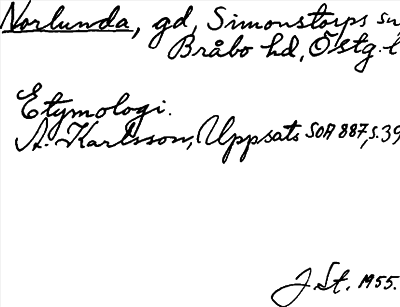 Norlunda, gd, Simonstorps sn
Bråbo hd, Östg. l
Etymologi.
A. Karlsson, Uppsats SOA 887, s. 39
J St. 1955.